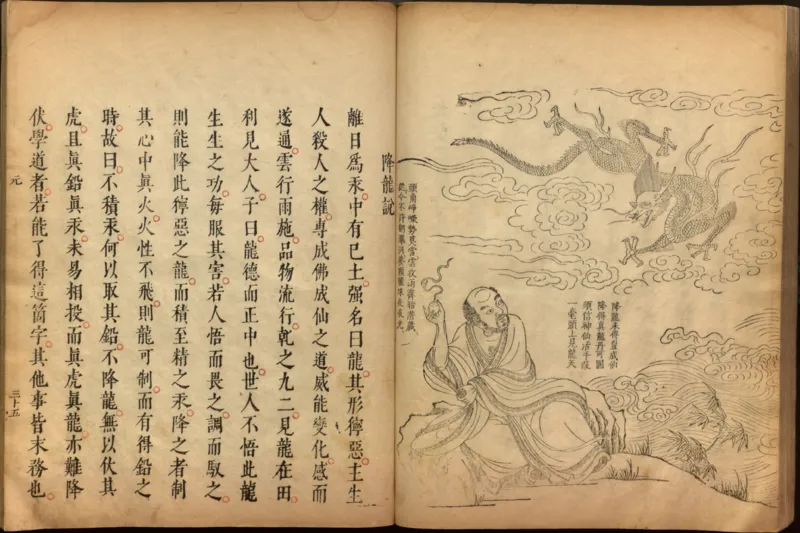 降得真龍丹可圓
一毫頭上見龍天
頭角崢嶸勢莫當雲收雨霽始潛藏
降龍說
離日為汞中有己土强名曰龍其形獰惡主生
人殺人之權專成佛成仙之道威能變化感而
遂通雲行雨施品物流行乾之九二見龍在田
利見大人子曰龍德而正中也世人不悟此龍
生生之功每服其害若人悟而畏之調而馭之
則能降此獰惡之龍而積至精之汞降之者制
其心中真火火性不飛則龍可制而有得鉛之
時故曰不積汞何以取其鉛不降龍無以伏其
虎且眞鉛眞汞未易相投而眞虎眞龍亦難降
伏學道者若能了得這箇字其他事皆末務也
元
三十五